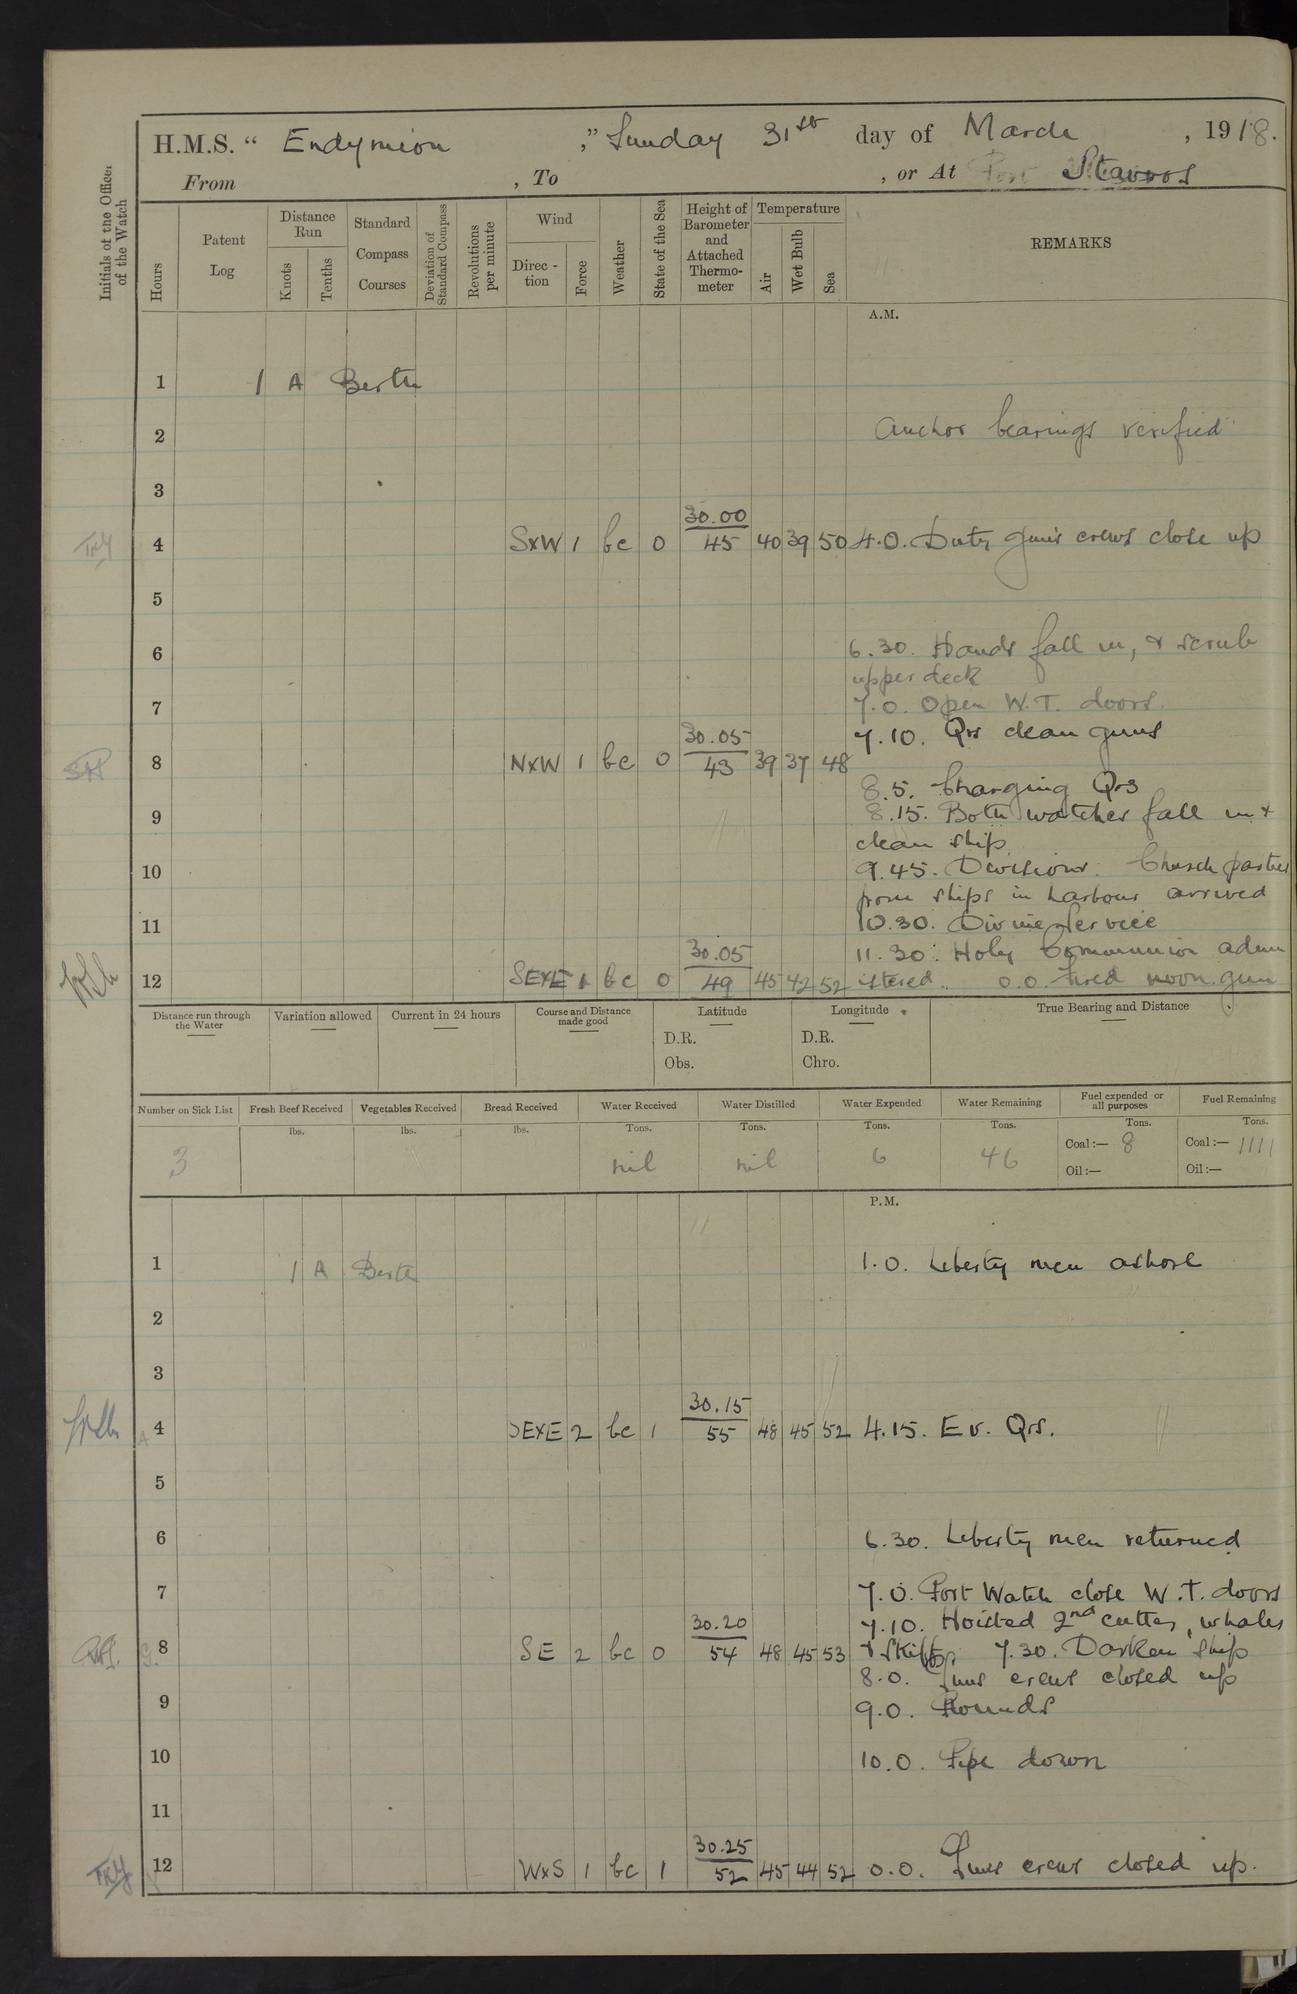 H.M.S. " Endymion ," Sunday 31st day of March , 1918.
From , To , or At Port Stavros
Initials of the Officer of the Watch
Hours
Patent Log
Distance Run
Knots
Tenths
Standard Compass Courses
Deviation of Standard Compass
Revolutions per minute
Wind
Direc-tion
Force
Weather
State of the Sea
Height of Barometer and Attached Thermo-meter
Temperature
Air
Wet Bulb
Sea
REMARKS
A.M.
1 1 A Berth
2 Anchor bearings verified
3
30.00
4 SxW 1 bc 0 45 40 39 50 4.0. Duty gun's crews close up
5
6 6.30. Hands fall in, & scrub
upper deck
7 7.0. Open W.T. doors.
30.05 7.10. Qrs clean guns
8 NxW 1 bc 0 43 39 37 48
8.5. Changing Qrs
9 8.15. Both watches fall in &
clean ship
10 9.45. Divisions. Church parties
from ships in harbour arrived
11 10.30. Divine Service
30.05 11.30. Holy Communion admin
12 SExE 1 bc 0 49 45 42 52 istered. 0.0. Fired noon gun
Distance run through the Water
Variation allowed
Current in 24 hours
Course and Distance made good
Latitude
D.R.
Obs.
Longitude
D.R.
Chro.
True Bearing and Distance
Number on Sick List
Fresh Beef Received
Vegetables Received
Bread Received
Water Received
Water Distilled
Water Expended
Water Remaining
Fuel expended or all purposes
Fuel Remaining
lbs. lbs. lbs. Tons. Tons. Tons. Tons. Tons. Tons.
3 nil nil 6 46 Coal :— 8 Coal :— 1111
Oil :— Oil :—
P.M.
1 1 A Berth 1.0. Liberty men ashore
2
3
30.15
4 SExE 2 bc 1 55 48 45 52 4.15. Ev. Qrs.
5
6 6.30. Liberty men returned
7 7.0. Port Watch close W.T. doors
30.20 7.10. Hoisted 2nd cutter, whaler
8 SE 2 bc 0 54 48 45 53 & skiff. 7.30. Darken ship
8.0. Guns crews closed up
9 9.0. Rounds
10 10.0. Pipe down
11
30.25
12 WxS 1 bc 1 52 45 44 52 0.0. Guns crews closed up.